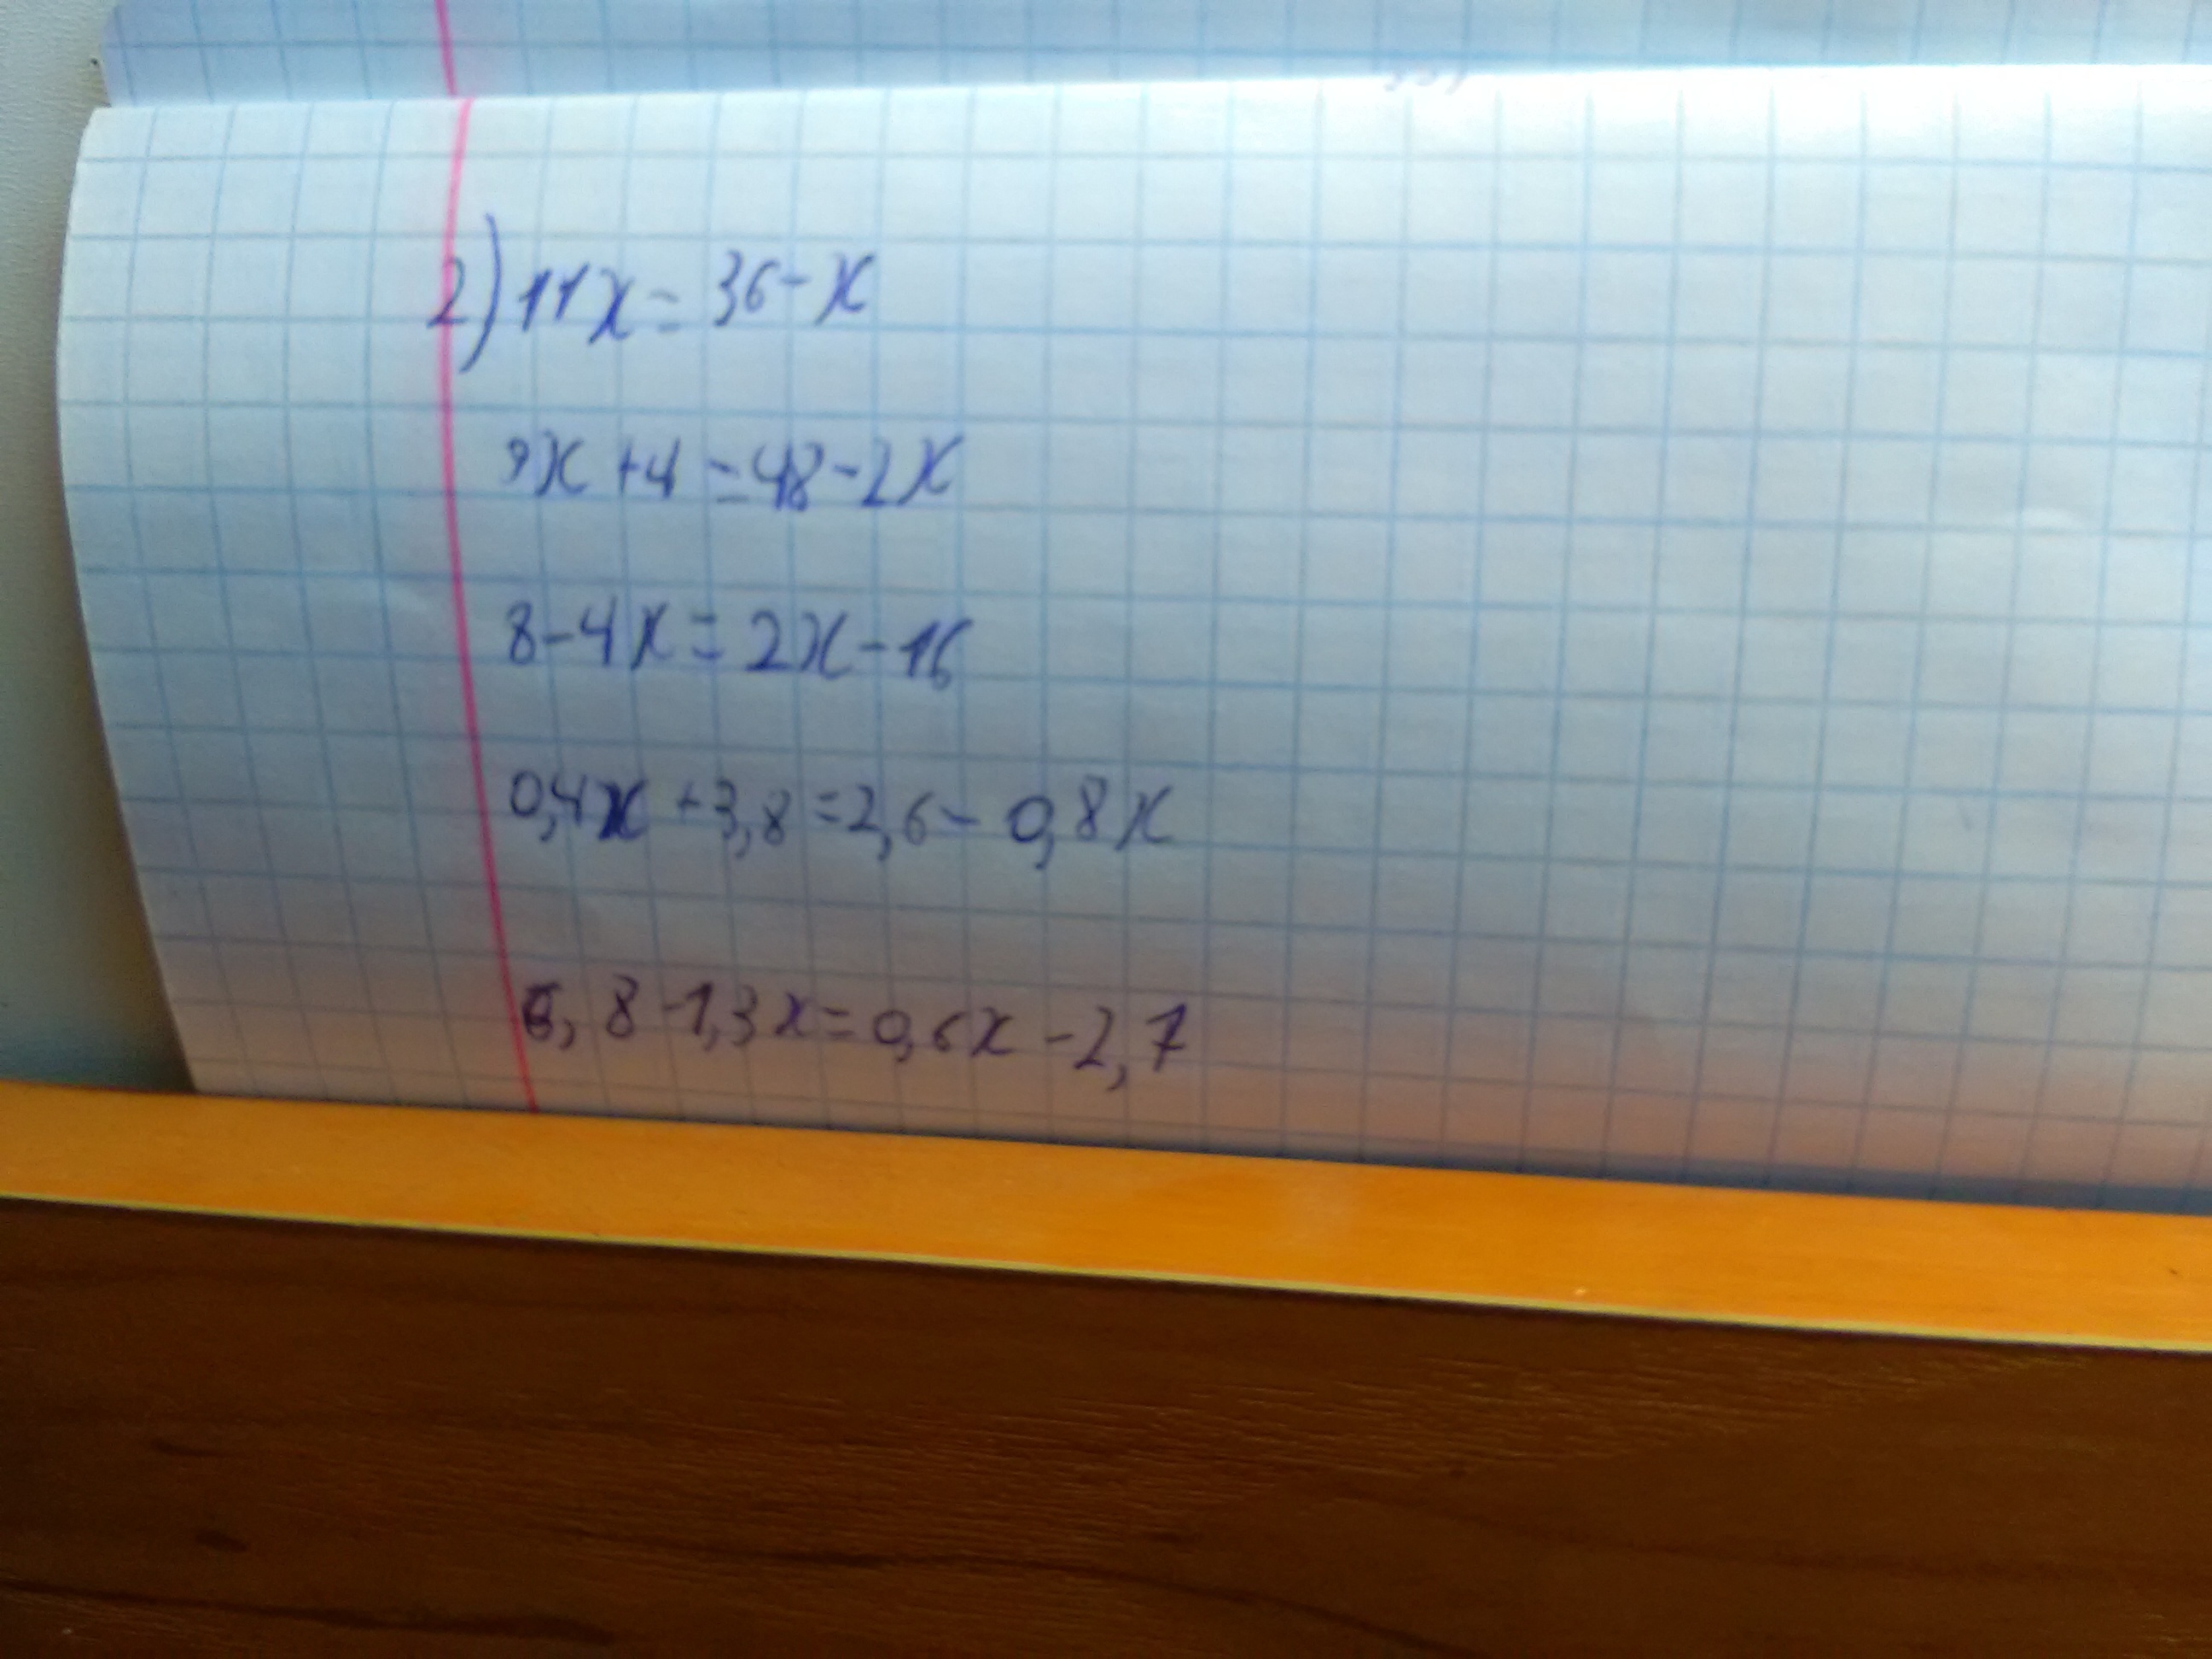 2) 11x = 36 - x
9x + 4 = 48 - 2x
8 - 4x = 2x - 16
0,4x + 3,8 = 2,6 - 0,8x
6,8 - 1,3x = 0,6x - 2,7